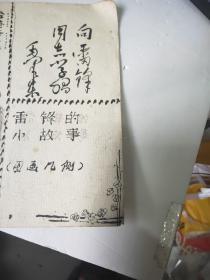 向雷锋
同志学习
毛泽东
雷锋的
小故事
(图画几则)